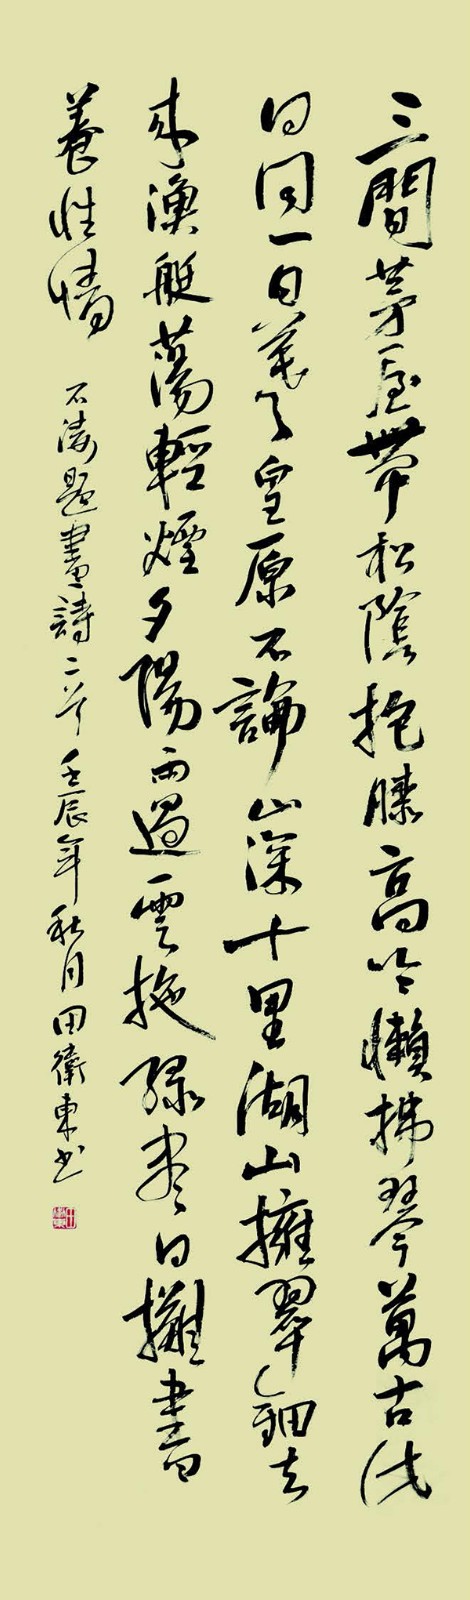 三間茅屋帶松蔭抱膝高吟懶拂琴萬古代
日同一日羲皇原不論山深十里湖山擁翠鈿去
來漁艇蕩輕煙夕陽雨過雲拖綠盡日攤書
養性情 石濤題畫詩二首 壬辰年秋月田衛東書